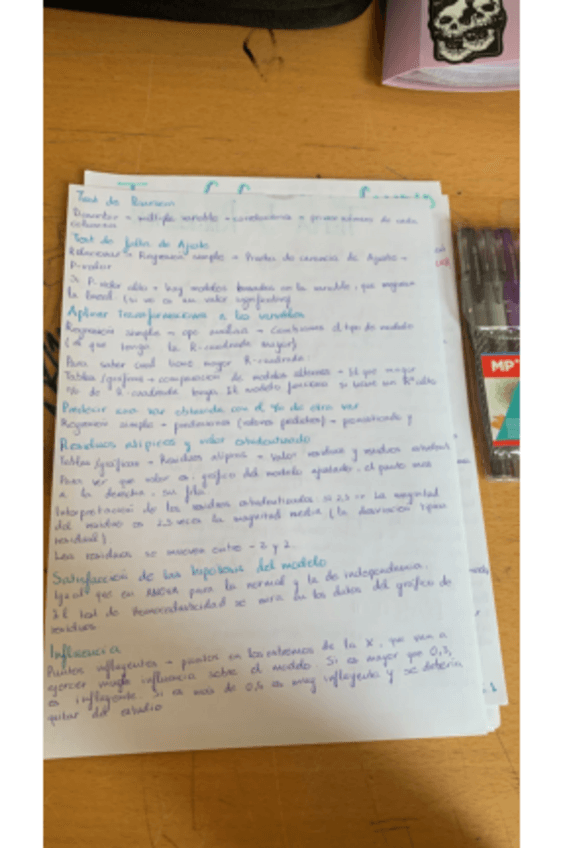 Test de
Describir → múltiple variable → correlaciones → primer número de cada
columna
Test de falta de Ajuste
Relacionar → Regresión simple → Prueba de carencia de Ajuste →
P-valor
Si P-valor alto → hay modelos basados en la variable, que mejoran
la lineal (si no es un valor significativo)
Aplicar transformaciones a las variables
Regresión simple → opc análisis → cambiamos el tipo de modelo
(el que tenga la R-cuadrada mayor)
Para saber cual tiene mayor R-cuadrada:
Tablas/gráficos → comparación de modelos alternos → El que mayor
% de R-cuadrada tenga. El modelo funciona si tiene un R² alto
Predecir una var obtenida con el % de otra var
Regresión simple → predicciones (valores predichos) → pinchando y
Residuos atípicos y valor estudentizado
Tablas/gráficos → Residuos atípicos → valor residuos y residuos estudent
Para ver que valor es, gráfico del modelo ajustado, el punto mas
a la derecha, su fila
Interpretación de los residuos estudentizados: si 2,5 => La magnitud
del residuo es 2,5 veces la magnitud media (la desviación típica
residual)
Los residuos se mueven entre -2 y 2.
Satisfacción de las hipótesis del modelo
Igual que en ANOVA para la normal y la de independencia.
El test de Homocedasticidad se mira en los datos del gráfico de
residuos
Influencia
Puntos influyentes → puntos en los extremos de la X, que van a
ejercer mucha influencia sobre el modelo. Si es mayor que 0,3,
es influyente. Si es más de 0,5 es muy influyente y se debería
quitar del estudio
MP